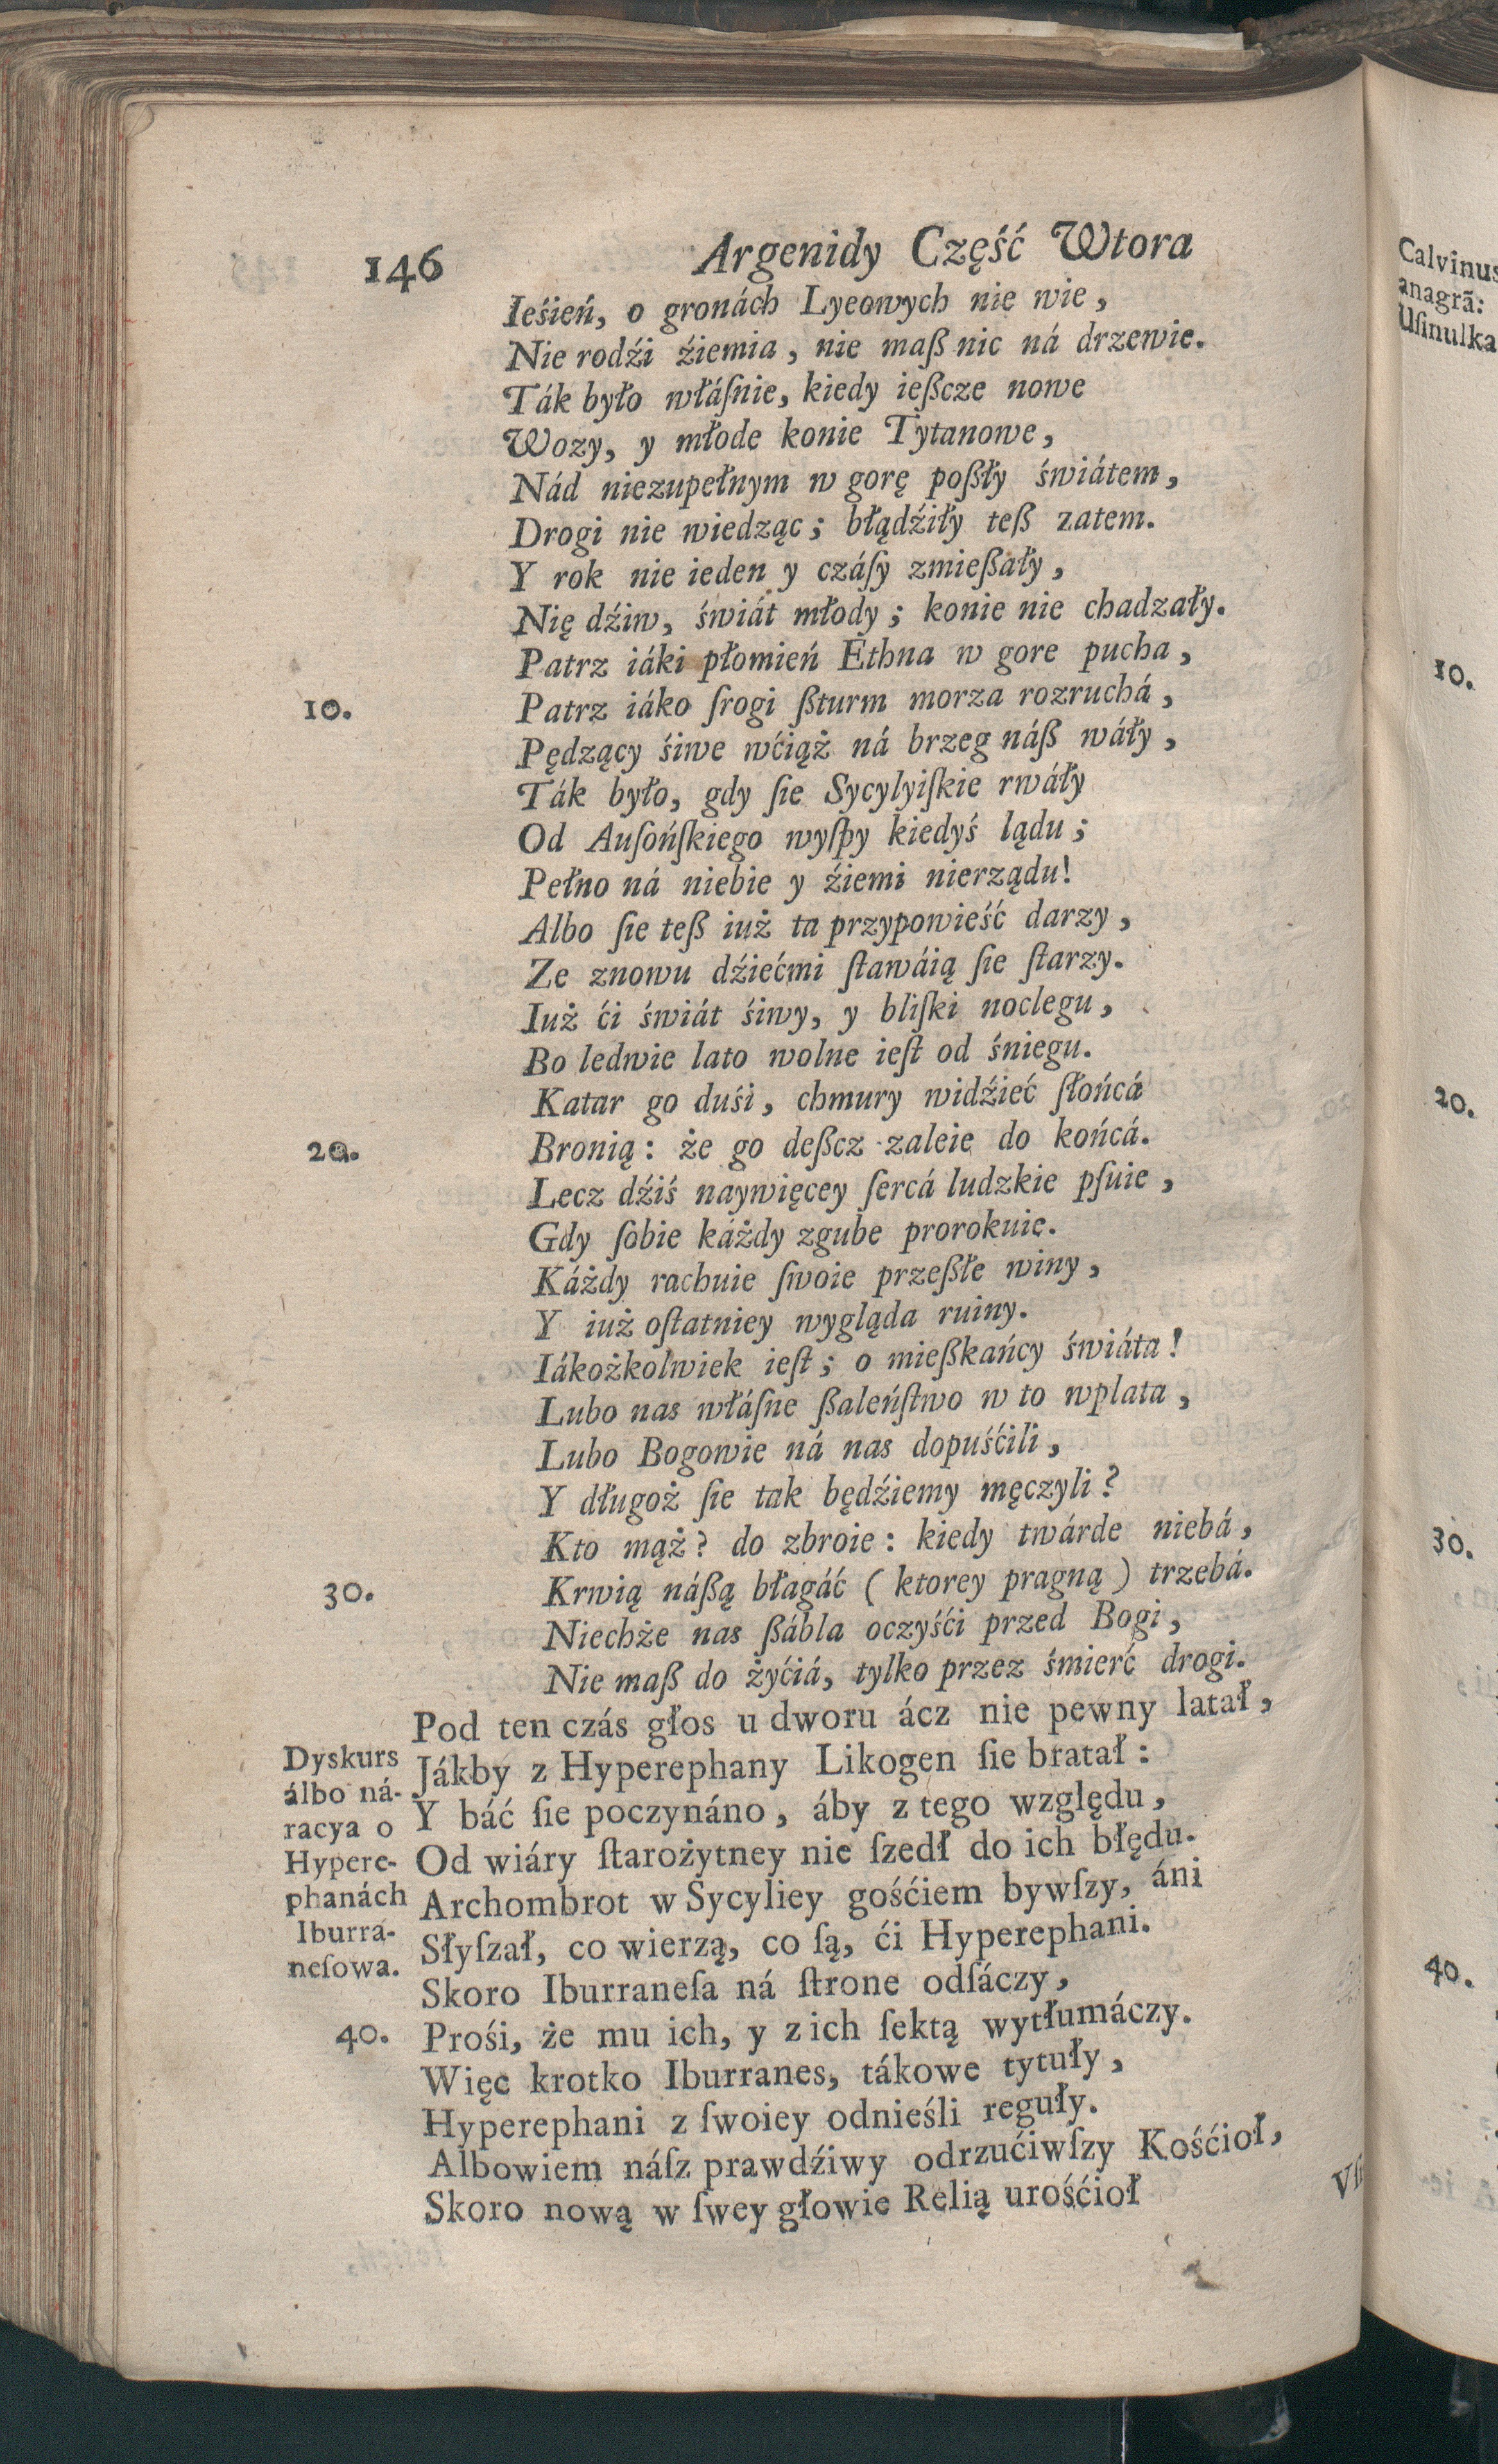 146 Argenidy Część Wtora
Ieśień, o gronách Lyeowych nie wie,
Nie rodźi źiemia, nie maß nic ná drzewie.
Ták było właſnie, kiedy ießcze nowe
Wozy, y młode konie Tytanowe,
Nád niezupełnym w gorę poßły świátem,
Drogi nie wiedząc; błądźiły teß zatem.
Y rok nie ieden y czáſy zmießały,
Nię dźiw, świát młody; konie nie chadzały.
Patrz iáki płomień Ethna w gore pucha,
10. Patrz iáko ſrogi ßturm morza rozruchá,
Pędzący śiwe wćiąż ná brzeg náß wáły,
Ták było, gdy ſie Sycylyiſkie rwáły
Od Auſońſkiego wyſpy kiedyś lądu;
Pełno ná niebie y źiemi nierządu!
Albo ſie teß iuż ta przypowieść darzy,
Ze znowu dźiećmi ſtawáią ſie ſtarzy.
Iuż ći świát śiwy, y bliſki noclegu,
Bo ledwie lato wolne ieſt od śniegu.
Katar go duśi, chmury widźieć ſłońcá
20. Bronią: że go deßcz zaleie do końcá.
Lecz dźiś naywięcey ſercá ludzkie pſuie,
Gdy ſobie káżdy zgube prorokuie.
Káżdy rachuie ſwoie przeßłe winy,
Y iuż oſtatniey wygląda ruiny.
Iákożkolwiek ieſt; o mießkańcy świáta!
Lubo nas właſne ßaleńſtwo w to wplata,
Lubo Bogowie ná nas dopuśćili,
Y długoż ſie tak będźiemy męczyli?
Kto mąż? do zbroie: kiedy twárde niebá,
30. Krwią náßą błagáć (ktorey pragną) trzebá.
Niechże nas ßábla oczyśći przed Bogi,
Nie maß do żyćiá, tylko przez śmierć drogi.
Pod ten czás głos u dworu ácz nie pewny latał,
Jákby z Hyperephany Likogen ſie bratał:
Y báć ſie poczynáno, áby z tego względu,
Od wiáry ſtarożytney nie ſzedł do ich błędu.
Archombrot w Sycyliey gośćiem bywſzy, áni
Słyſzał, co wierzą, co ſą, ći Hyperephani.
Skoro Iburraneſa ná ſtrone odſáczy,
40. Prośi, że mu ich, y z ich ſektą wytłumáczy.
Więc krotko Iburranes, tákowe tytuły,
Hyperephani z ſwoiey odnieśli reguły.
Albowiem náſz prawdźiwy odrzućiwſzy Kośćioł,
Skoro nową w ſwey głowie Relią urośćioł
Dyskurs
álbo ná-
racya o
Hypere-
phanách
Iburra-
neſowa.
Calvinus
anagrã:
Uſinulka
10.
20.
30.
40.